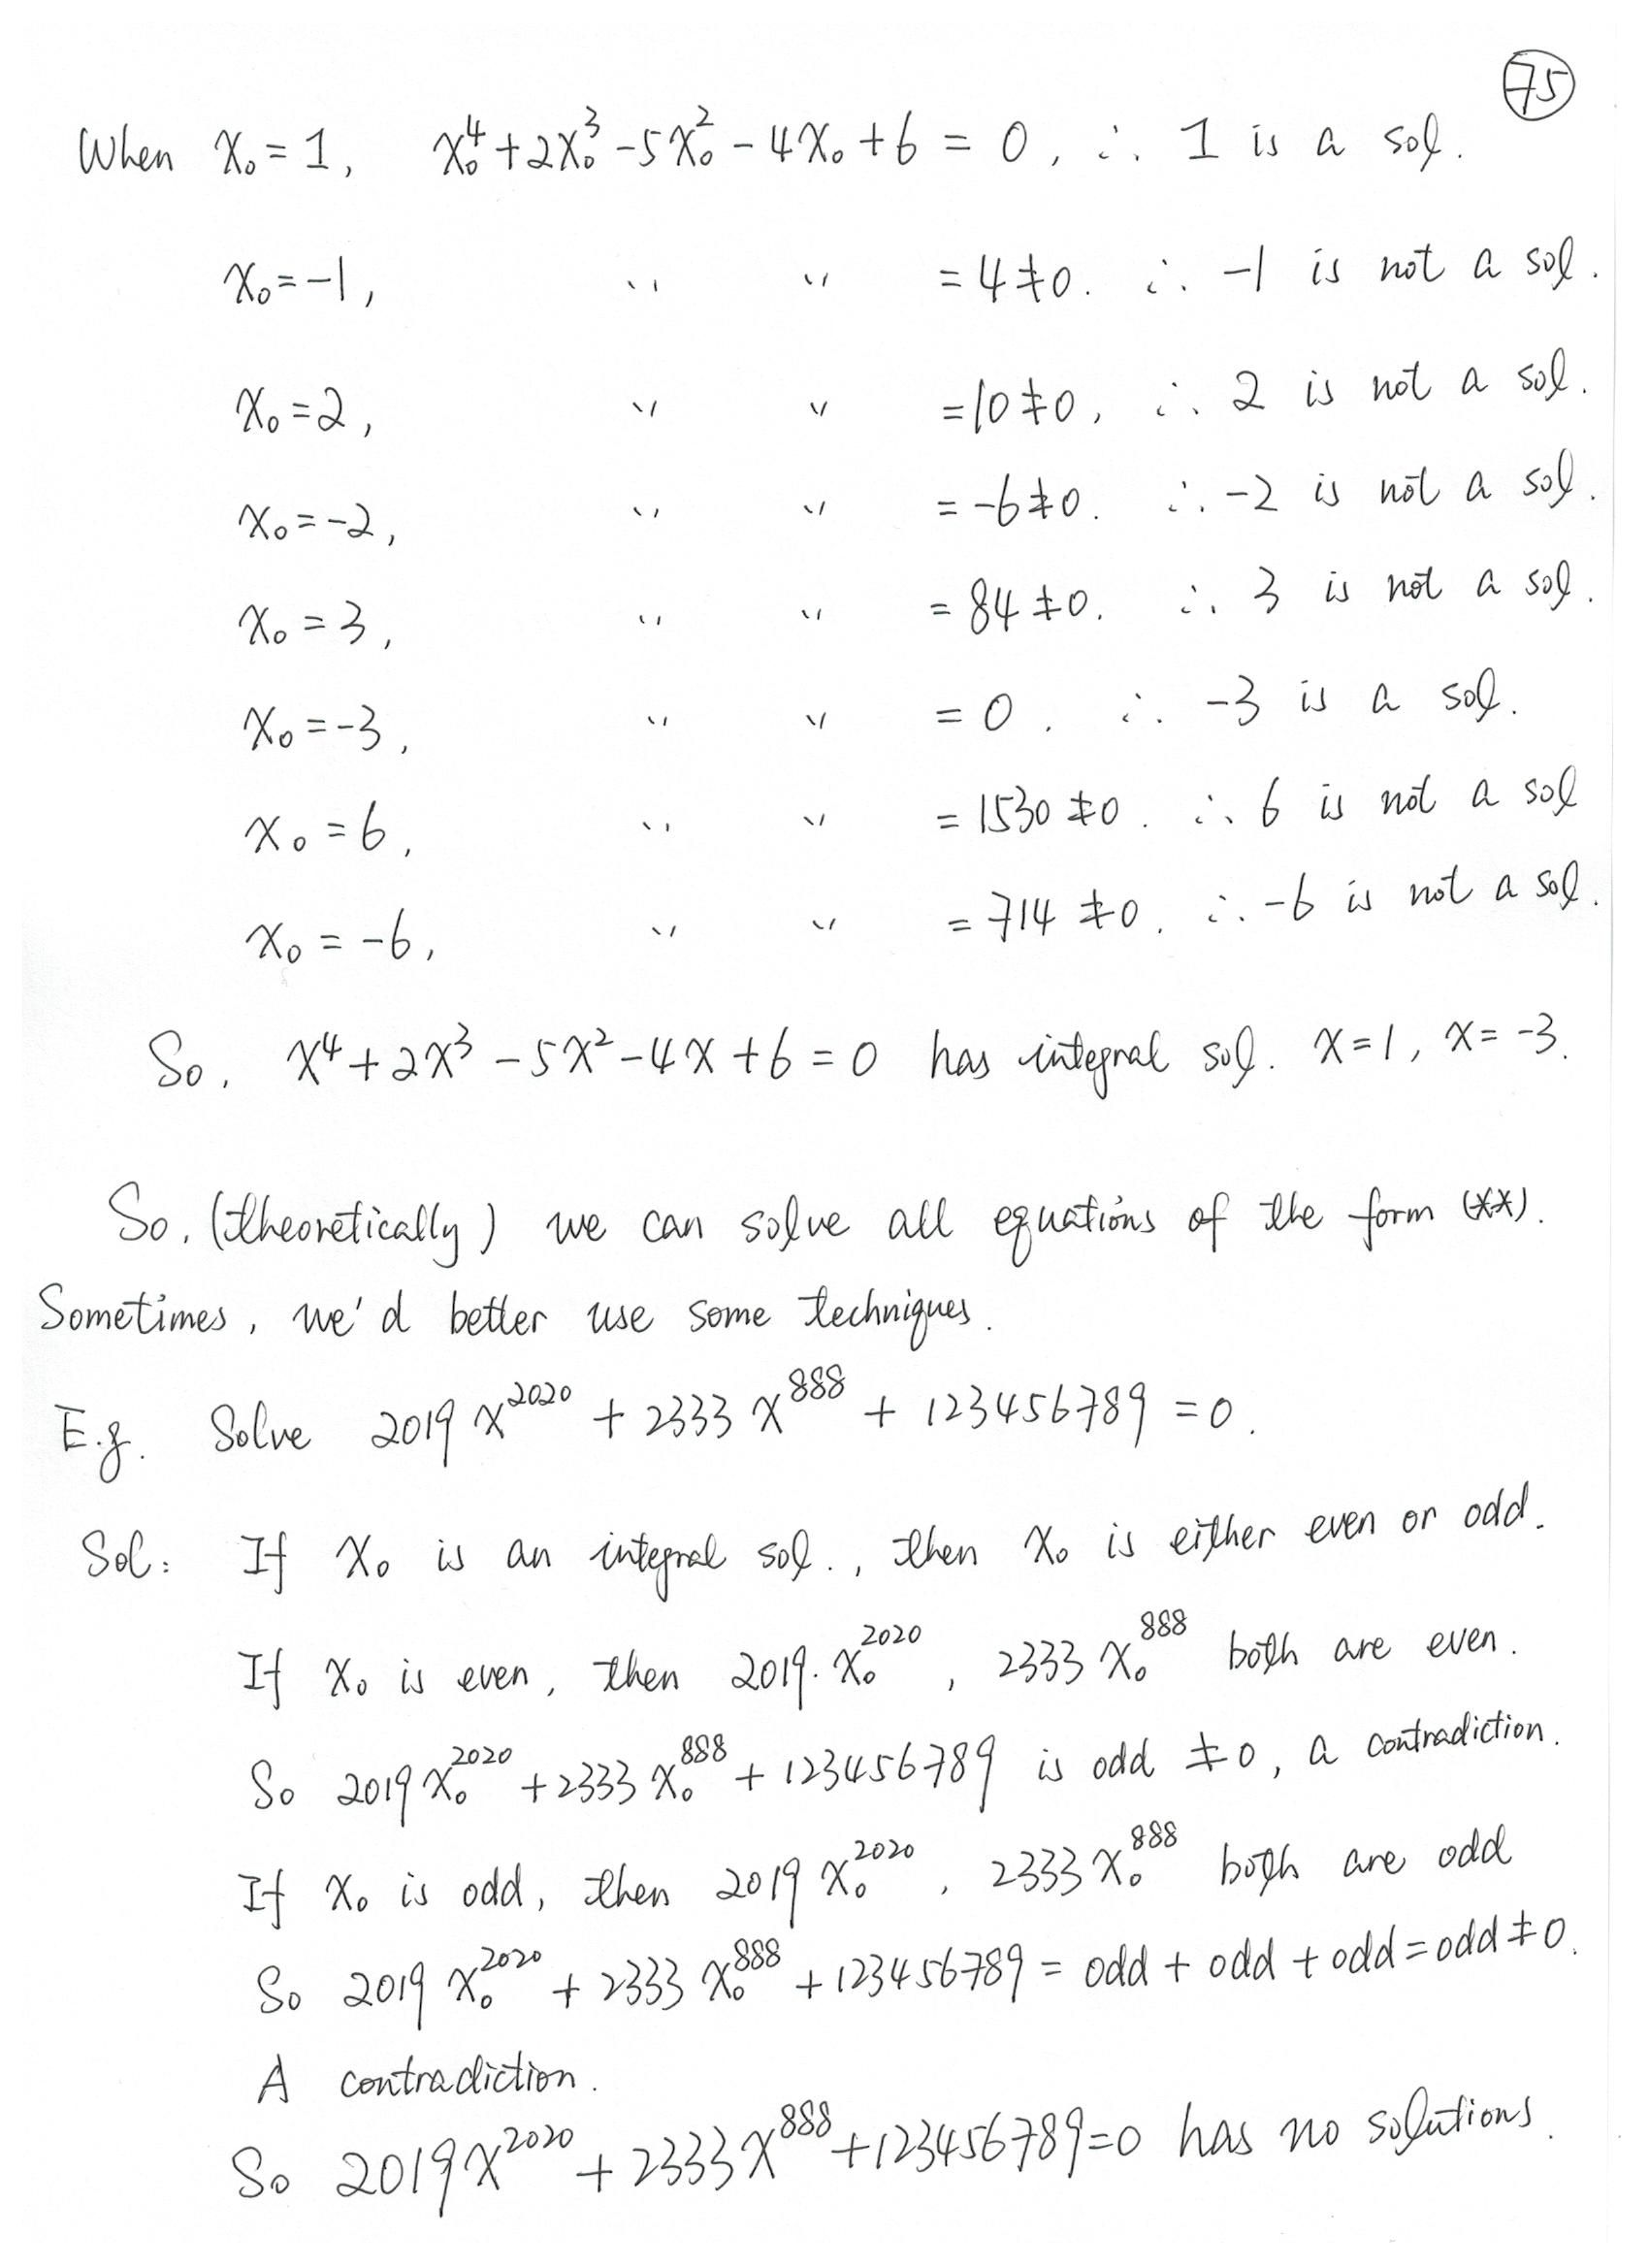 75
When x₀ = 1, x₀⁴ + 2x₀³ - 5x₀² - 4x₀ + 6 = 0, ∴ 1 is a sol.
x₀ = -1, " " = 4 ≠ 0. ∴ -1 is not a sol.
x₀ = 2, " " = 10 ≠ 0, ∴ 2 is not a sol.
x₀ = -2, " " = -6 ≠ 0. ∴ -2 is not a sol.
x₀ = 3, " " = 84 ≠ 0. ∴ 3 is not a sol.
x₀ = -3, " " = 0. ∴ -3 is a sol.
x₀ = 6, " " = 1530 ≠ 0. ∴ 6 is not a sol
x₀ = -6, " " = 714 ≠ 0. ∴ -6 is not a sol.
So, x⁴ + 2x³ - 5x² - 4x + 6 = 0 has integral sol. x = 1, x = -3.
So, (theoretically) we can solve all equations of the form (**).
Sometimes, we'd better use some techniques.
E.g. Solve 2019 x²⁰²⁰ + 2333 x⁸⁸⁸ + 123456789 = 0.
Sol: If x₀ is an integral sol., then x₀ is either even or odd.
If x₀ is even, then 2019·x₀²⁰²⁰, 2333 x₀⁸⁸⁸ both are even.
So 2019 x₀²⁰²⁰ + 2333 x₀⁸⁸⁸ + 123456789 is odd ≠ 0, a contradiction.
If x₀ is odd, then 2019 x₀²⁰²⁰, 2333 x₀⁸⁸⁸ both are odd
So 2019 x₀²⁰²⁰ + 2333 x₀⁸⁸⁸ + 123456789 = odd + odd + odd = odd ≠ 0.
A contradiction.
So 2019x²⁰²⁰ + 2333x⁸⁸⁸ + 123456789 = 0 has no solutions.